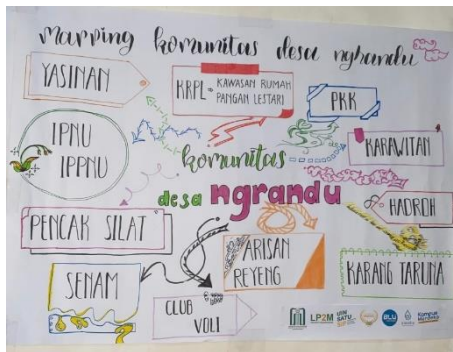 mapping komunitas desa ngrandu
YASINAN
KRPL = KAWASAN RUMAH
PANGAN LESTARI
PKK
IPNU
IPPNU
komunitas
desa ngrandu
KARAWITAN
HADROH
PENCAK SILAT
ARISAN
REYENG
KARANG TARUNA
SENAM
CLUB
VOLI
LP2M